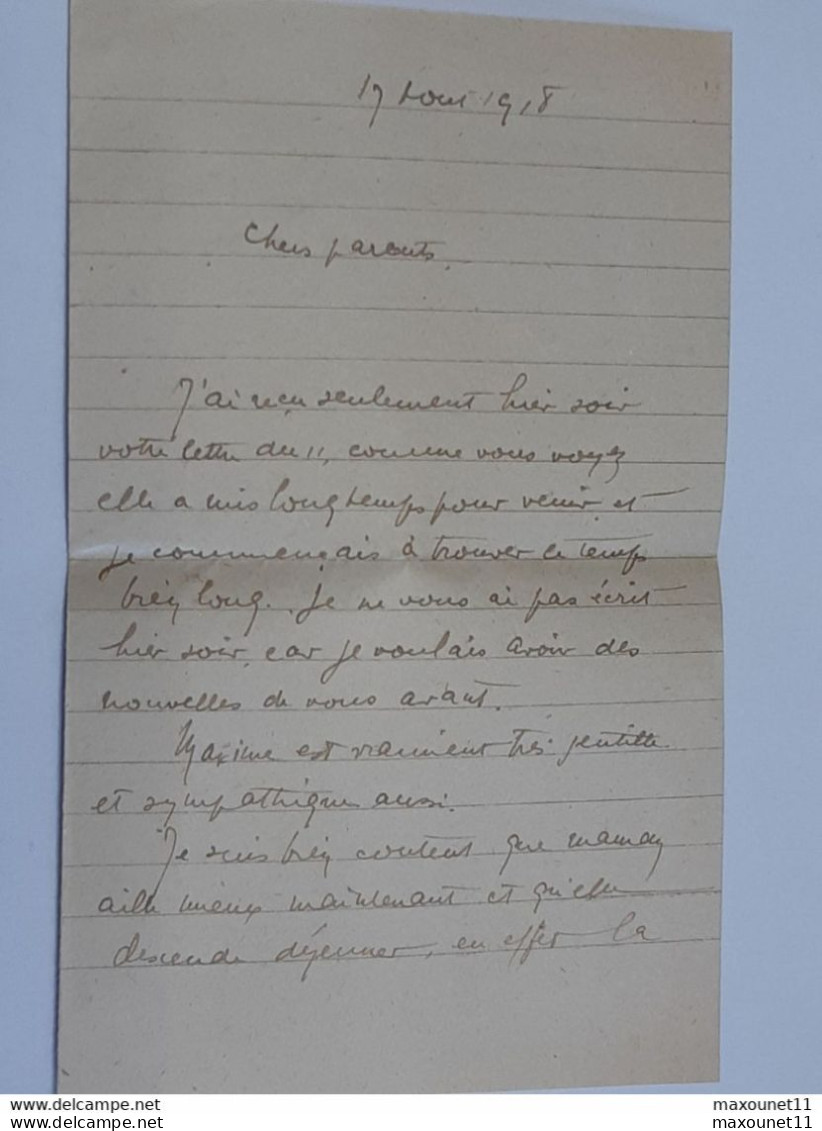 17 Aout 1918
Chers parents,
J'ai reçu seulement hier soir
votre lettre du 11, comme vous voyez
elle a mis longtemps pour venir et
je commençais à trouver le temps
bien long. Je ne vous ai pas écrit
hier soir, car je voulais avoir des
nouvelles de vous avant.
Maxime est vraiment très gentille
et sympathique aussi.
Je suis bien content que maman
aille mieux maintenant et qu'elle
descende déjeuner, en effet la
maxounet11
maxounet11
maxounet11
maxounet11